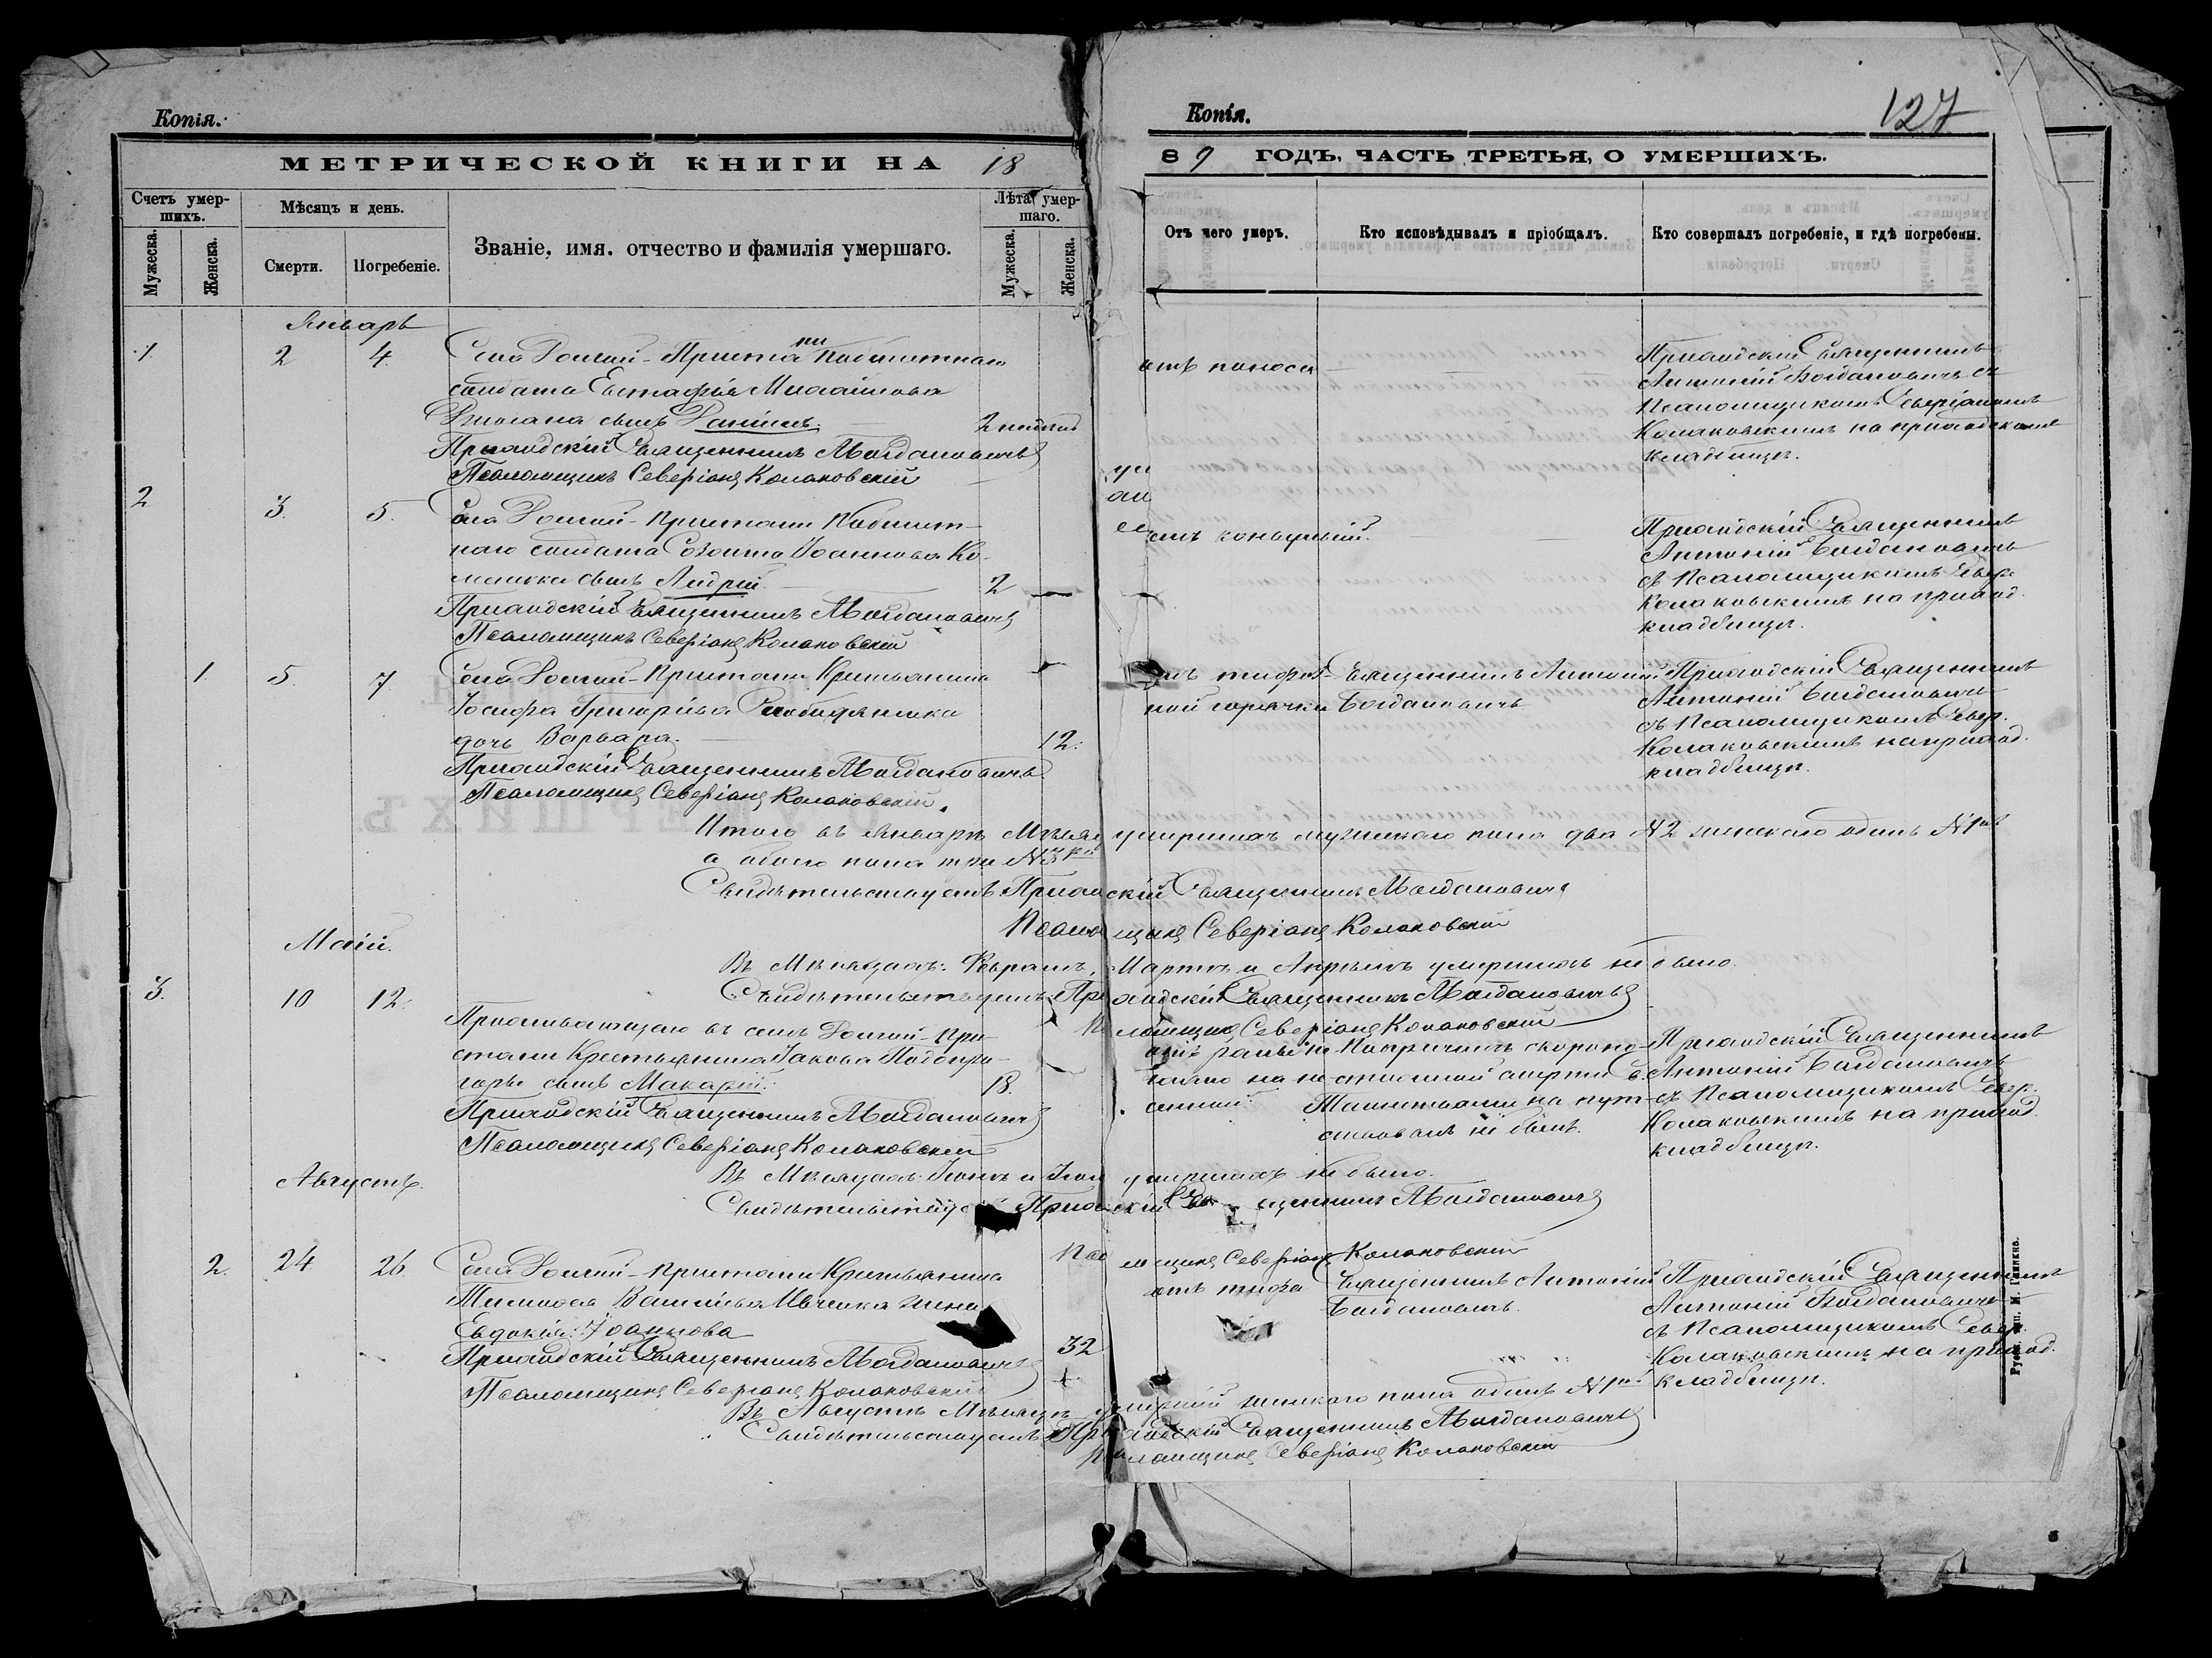 Копія.
МЕТРИЧЕСКОЙ КНИГИ НА 18
Счетъ умер-
шихъ.
Мѣсяцъ и день.
Званіе, имя, отчество и фамилія умершаго.
Лѣта умер-
шаго.
Мужеска.
Женска.
Смерти.
Погребеніе.
Мужеска.
Женска.
Январь
1. 2 4. Села Долгой-Приста ни кабинетнаго
солдата Евстафія Михаилова
сынъ Даніилъ. 2 недѣль
Приходскій Священникъ А Богдановичъ
Псаломщикъ Северіанъ Колаковскій
2 3. 5. Села Долгой-Пристани Кабинет-
наго солдата Созонта Іоаннова
сынъ Андрей. 2
Приходскій Священникъ А Богдановичъ
Псаломщикъ Северіанъ Колаковскій
1 5. 7 Села Долгой-Пристани Крестьянина
Іосифа Григоріева
дочь Варвара. 12.
Приходскій Священникъ А Богдановичъ
Псаломщикъ Северіанъ Колаковскій.
Итого въ Январѣ Мѣсяцѣ умершихъ мужескаго пола два №2 женскаго одинъ №1
а обоего пола три №3
Свидѣтельствуемъ Приходскій Священникъ А Богдановичъ
Псаломщикъ Северіанъ Колаковскій
Маій.
Въ Мѣсяцахъ: Февралѣ, Мартѣ и Апрѣлѣ умершихъ не было.
Свидѣтельствуемъ Приходскій Священникъ А Богдановичъ
Псаломщикъ Северіанъ Колаковскій
3. 10 12. Проживающаго въ селѣ Долгой-При-
стани Крестьянина Іакова Подопри-
горы сынъ Макарій. 18.
Приходскій Священникъ А Богдановичъ
Псаломщикъ Северіанъ Колаковскій
Августъ.
Въ Мѣсяцахъ: Іюнѣ и Іюлѣ умершихъ не было.
Свидѣтельствуемъ Приходскій Священникъ А Богдановичъ
Псаломщикъ Северіанъ Колаковскій
2. 24 26. Села Долгой-Пристани Крестьянина
Василіева жена
Евдокія Іоаннова 32
Приходскій Священникъ А Богдановичъ
Псаломщикъ Северіанъ Колаковскій
Въ Августѣ Мѣсяцѣ умершій женскаго пола одинъ №1
Свидѣтельствуемъ Приходскій Священникъ А Богдановичъ
Псаломщикъ Северіанъ Колаковскій
Копія.
127
89 ГОДЪ, ЧАСТЬ ТРЕТЬЯ, О УМЕРШИХЪ.
Отъ чего умеръ.
Кто исповѣдывалъ и пріобщалъ.
Кто совершалъ погребеніе, и гдѣ погребены.
отъ поноса
Приходскій Священникъ
Антоній Богдановичъ съ
Псаломщикомъ Северіаномъ
Колаковскимъ на приходскомъ
кладбищѣ.
отъ конвульсій.
Приходскій Священникъ
Антоній Богдановичъ
съ Псаломщикомъ Север.
Колаковскимъ на приход.
кладбищѣ.
отъ тифоз-
ной горячки
Священникъ Антоній
Богдановичъ
Приходскій Священникъ
Антоній Богдановичъ
съ Псаломщикомъ Север.
Колаковскимъ на приход.
кладбищѣ.
По причинѣ скоропо-
стижной смерти Св.
Таинствами не пут-
ствованъ
Приходскій Священникъ
Антоній Богдановичъ
съ Псаломщикомъ Север.
Колаковскимъ на приход.
кладбищѣ.
отъ тифа
Священникъ Антоній
Богдановичъ.
Приходскій Священникъ
Антоній Богдановичъ
съ Псаломщикомъ Север.
Колаковскимъ на приход.
кладбищѣ.